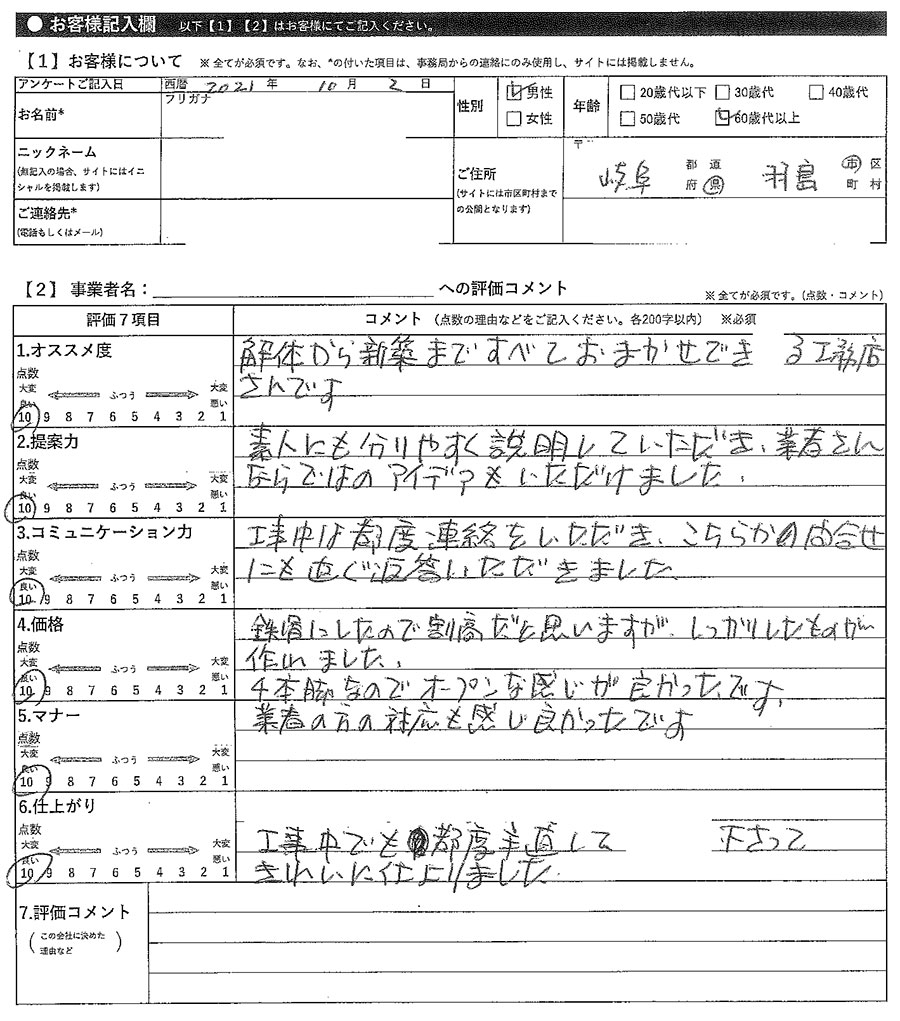 ● お客様記入欄 以下【1】【2】はお客様にてご記入ください。
【1】お客様について ※ 全てが必須です。なお、*の付いた項目は、事務局からの連絡にのみ使用し、サイトには掲載しません。
アンケートご記入日 西暦 2021 年 10 月 2 日
お名前* フリガナ
性別 ☑男性 □女性
年齢 □20歳代以下 □30歳代 □40歳代
□50歳代 ☑60歳代以上
ニックネーム
(無記入の場合、サイトにはイニ
シャルを掲載します)
ご連絡先*
(電話もしくはメール)
ご住所
(サイトには市区町村まで
の公開となります)
〒
岐阜 都 道 府 県 羽島 市 区 町 村
【2】事業者名: への評価コメント
※ 全てが必須です。(点数・コメント)
評価7項目 コメント (点数の理由などをご記入ください。各200字以内) ※必須
1.オススメ度
点数
大変 良い ふつう 大変 悪い
10 9 8 7 6 5 4 3 2 1
解体から新築まですべておまかせでき る工務店
さんです
2.提案力
点数
大変 良い ふつう 大変 悪い
10 9 8 7 6 5 4 3 2 1
素人にも分りやすく説明していただき、業者さん
ならではのアイデアもいただけました。
3.コミュニケーション力
点数
大変 良い ふつう 大変 悪い
10 9 8 7 6 5 4 3 2 1
工事中は都度連絡をいただき、こちらかの問合せ
にも直ぐ返答いただきました。
4.価格
点数
大変 良い ふつう 大変 悪い
10 9 8 7 6 5 4 3 2 1
鉄骨にしたので割高だと思いますが、しっかりしたものが
作れました。
4本脚なのでオープンな感じが良かったです。
5.マナー
点数
大変 良い ふつう 大変 悪い
10 9 8 7 6 5 4 3 2 1
業者の方の対応も感じ良かったです
6.仕上がり
点数
大変 良い ふつう 大変 悪い
10 9 8 7 6 5 4 3 2 1
工事中でも都度手直して 下さって
きれいに仕上りました。
7.評価コメント
(この会社に決めた
理由など)